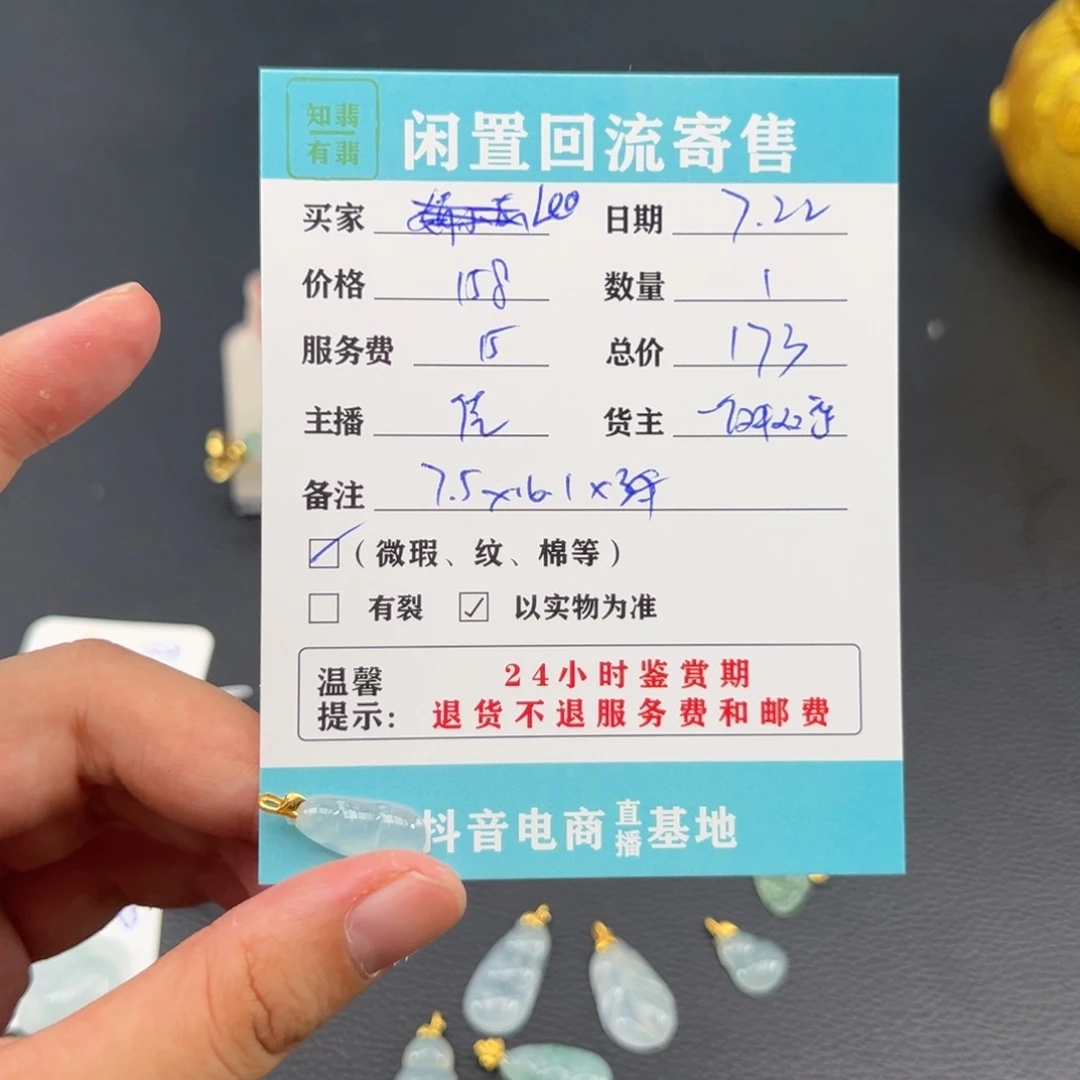 知翡
有翡
闲置回流寄售
买家 Leo 日期 7.22
价格 158 数量 1
服务费 15 总价 173
主播 货主
备注 7.5×16.1×3
(微瑕、纹、棉等)
有裂 以实物为准
温馨提示: 24小时鉴赏期
退货不退服务费和邮费
抖音电商直播基地